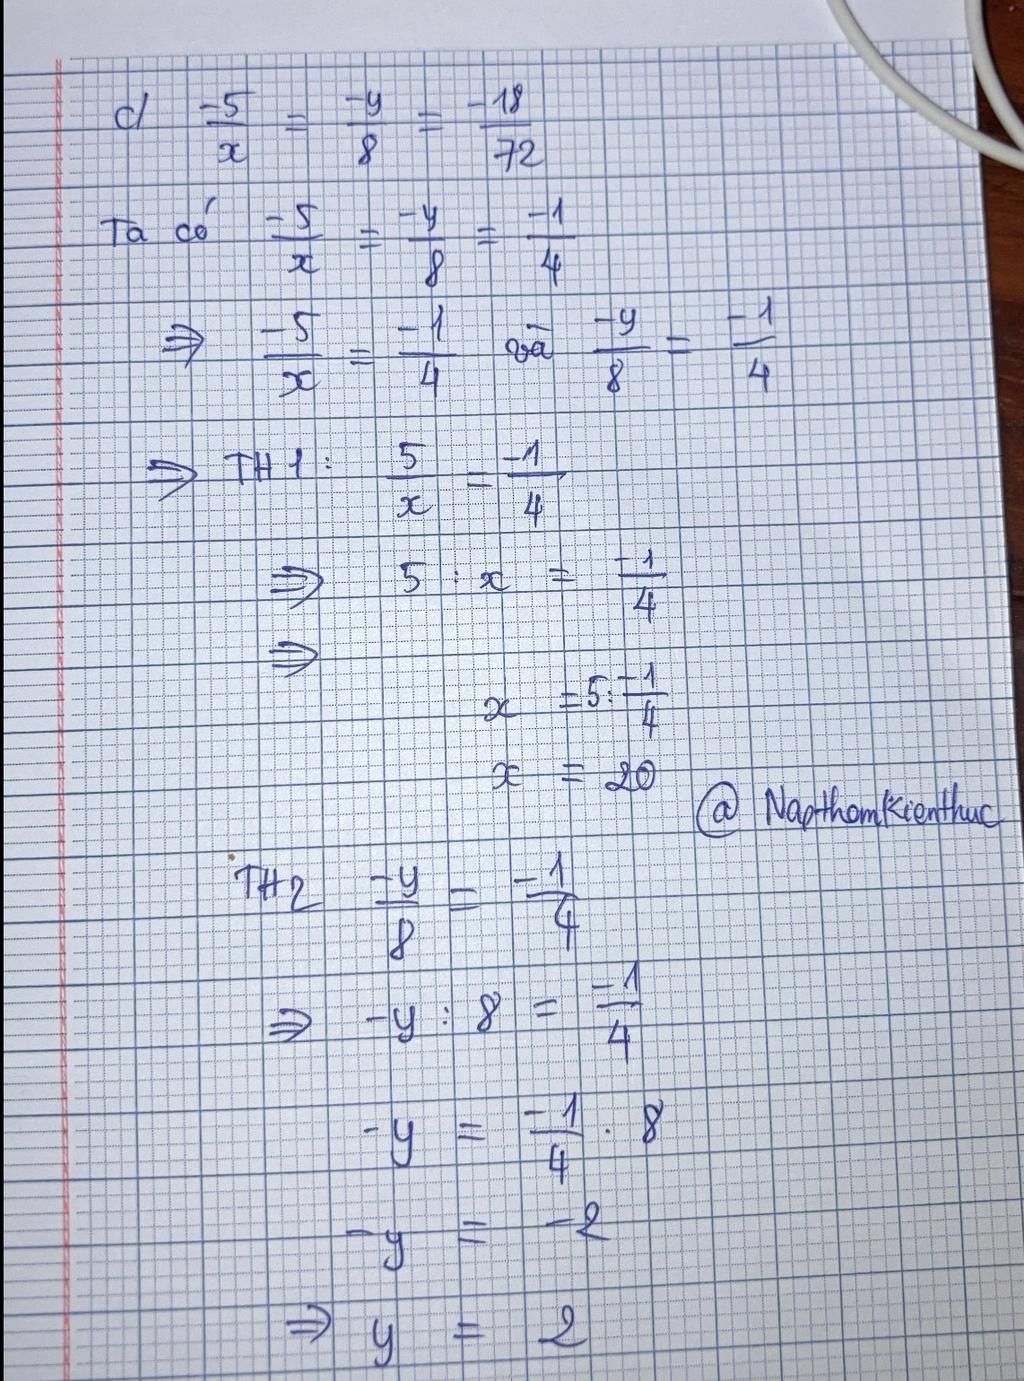 c/ -5/x = -y/8 = -18/72
Ta có -5/x = -y/8 = -1/4
⇒ -5/x = -1/4 và -y/8 = -1/4
⇒ TH1: 5/x = -1/4
⇒ 5 : x = -1/4
⇒
x = 5 : -1/4
x = 20
@ NapthomKienthuc
TH2 -y/8 = -1/4
⇒ -y : 8 = -1/4
-y = -1/4 . 8
-y = -2
⇒ y = 2